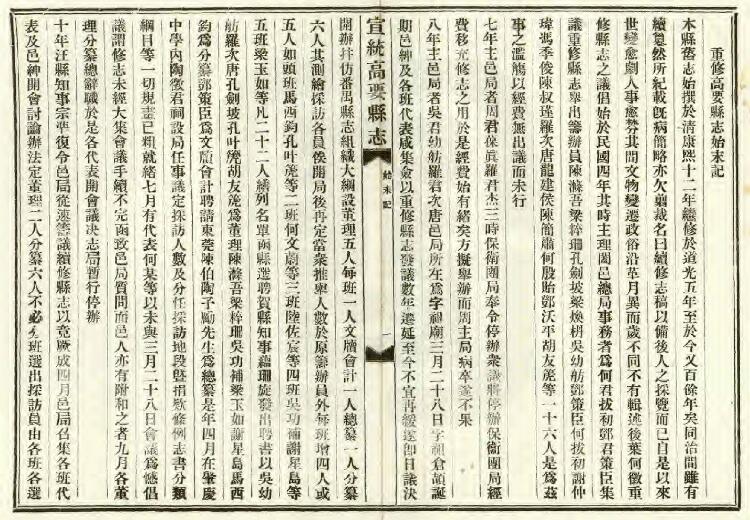 重修高要縣志始末記
本縣舊志始撰於清康熙十二年繼修於道光五年至於今又百餘年矣同治間雖有
續纂然所紀載旣病簡略亦欠翦裁名曰續修志稿以備後人之採覽而已自是以來
世變愈劇人事愈繁其間文物變遷政俗沿革月異而歲不同不有輯述後葉何徵重
修縣志之議倡始於民國四年其時主理闔邑總局事務者爲何君拔初鄧君策臣集
議重修縣志舉出籌辦員陳滌吾梁粹珊孔劍坡梁煥枬吳幼舫鄧策臣何拔初謝仲
瑋馮季俊陳叔瑾羅次唐龍建侯陳簡蕭何殷貽鄧沃平胡友篪等一十六人是爲茲
事之濫觴以經費無出議而未行
七年主邑局者周君保眞羅君杰三時保衛團局奉令停辦衆議將停辦保衛團局經
費移充修志之用於是經費始有緒矣方擬舉辦而周主局病卒遂不果
八年主邑局者吳君幼舫羅君次唐邑局所在爲字祖廟三月二十八日字祖倉頡誕
期邑紳及各班代表咸集僉以重修縣志發議數年遷延至今不宜再緩遂卽日議決
宣統高要縣志
始末記
一
開辦并仿番禺縣志組織大綱設董理五人每班一人文牘會計一人總纂一人分纂
六人其測繪採訪各員俟開局後再定當衆推舉人數於原籌辦員外每班增四人或
五人如頭班馬酉鈞孔叶篪等二班何文蔚等三班陸佐宸等四班吳功補謝星島等
五班梁玉如等凡二十二人繕列名單函縣選聘賀縣知事蘊珊旋發出聘書以吳幼
舫羅次唐孔劍坡孔叶篪胡友篪爲董理陳滌吾梁粹珊吳功補梁玉如謝星島馬酉
鈞爲分纂鄧策臣爲文牘會計聘請東莞陳伯陶子勵先生爲總纂是年四月在肇慶
中學內陶徵君祠設局任事議定採訪人數及分任採訪地段暨捐欵條例志書分類
綱目等一切規畫已粗就緒七月有代表何某等以未與三月二十八日會議爲憾倡
議謂修志未經大集會議手續不完函致邑局質問而邑人亦有附和之者九月各董
理分纂總辭職於是各代表開會議決志局暫行停辦
十年汪縣知事宗準復令邑局從速籌議續修縣志以竟厥成四月邑局召集各班代
表及邑紳開會討論辦法定董理二人分纂六人不必分班選出採訪員由各班各選